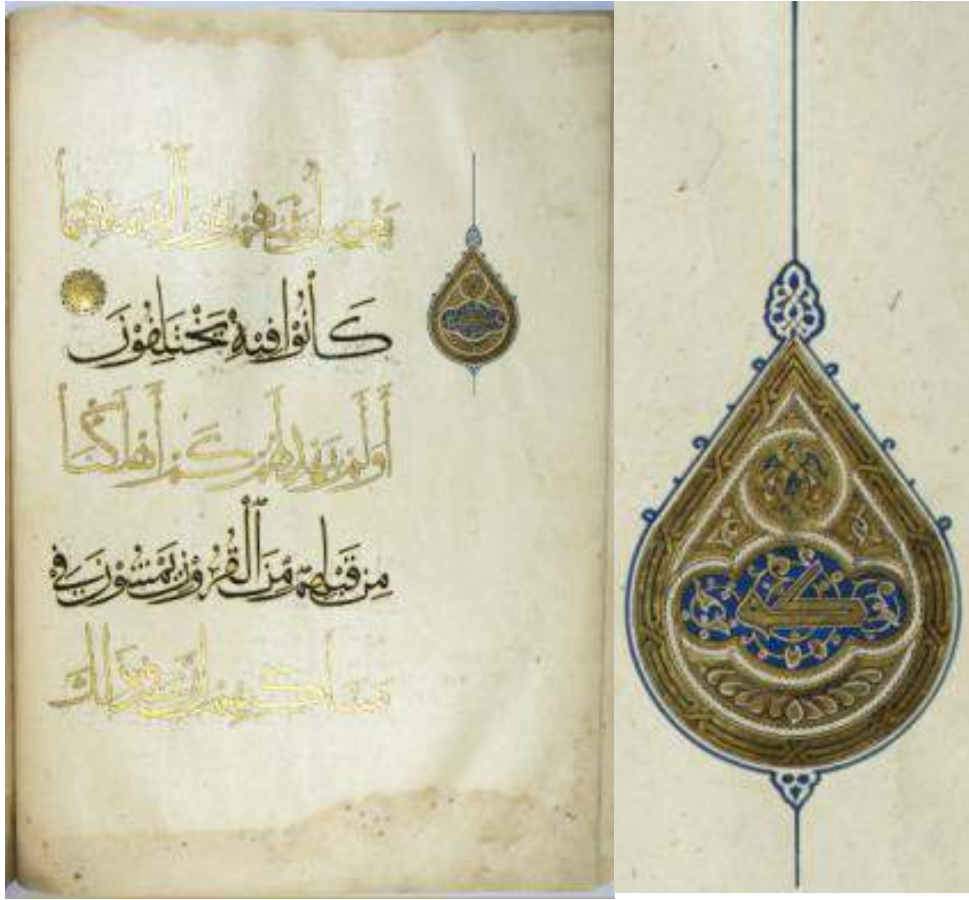 يفصل بينهم يوم القيمة فيما
كَانُوا فِيهِ يَخْتَلِفُونَ
أَوَلَمْ يَهْدِ لَهُمْ كَمْ أَهْلَكْنَا
مِن قَبْلِهِم مِّنَ الْقُرُونِ يَمْشُونَ فِي
مسكنهم إن في ذلك